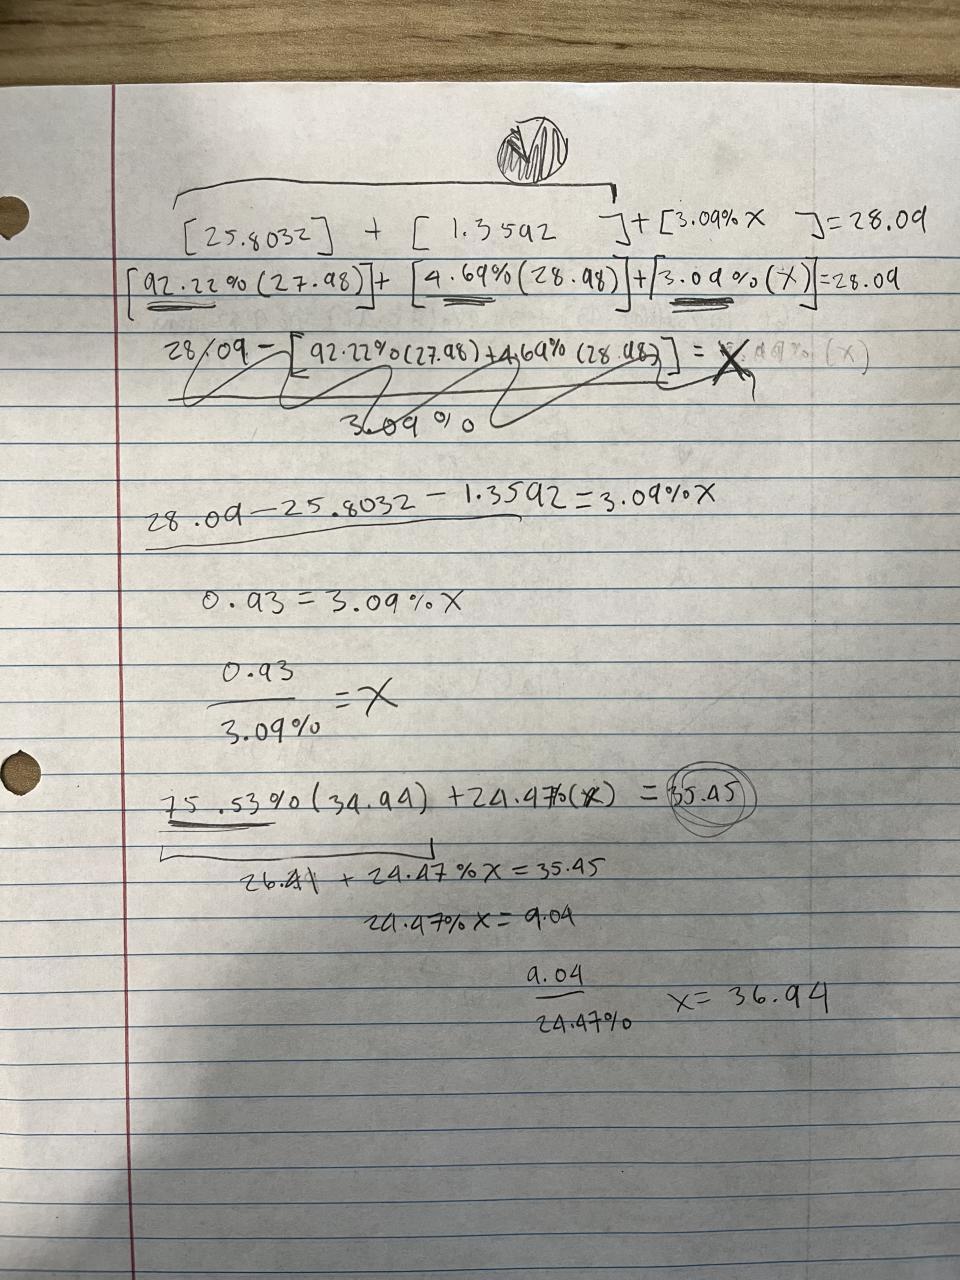 [25.8032] + [ 1.3592 ] + [3.09% X ] = 28.09
[92.22% (27.98)] + [4.69% (28.98)] + [3.09% (X)] = 28.09
28.09 - [92.22% (27.98) + 4.69% (28.98)] = X
3.09%
28.09 - 25.8032 - 1.3592 = 3.09% X
0.93 = 3.09% X
0.93
3.09%
= X
75.53% (34.94) + 24.47% (X) = 35.45
26.41 + 24.47% X = 35.45
24.47% X = 9.04
9.04
24.47%
X = 36.94